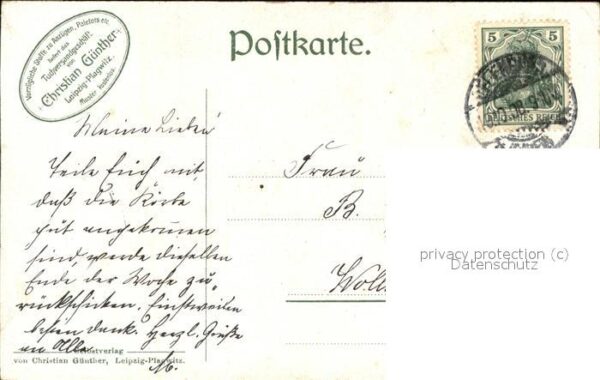 Vorzügliche Stoffe zu Anzügen, Paletots etc.
liefert das
Tuchversandgeschäft
von
Christian Günther
Leipzig-Plagwitz.
Muster kostenlos.
Postkarte.
5 5
DEUTSCHES REICH
Meine Lieben!
Teile Euch mit,
daß die Körbe
gut angekommen
sind, werde dieselben
Ende der Woche zu-
rückschicken. Einstweilen
besten Dank. Herzl. Grüße
an Alle.
M.
Frau
B.
privacy protection (c)
Datenschutz
Selbstverlag
von Christian Günther, Leipzig-Plagwitz.